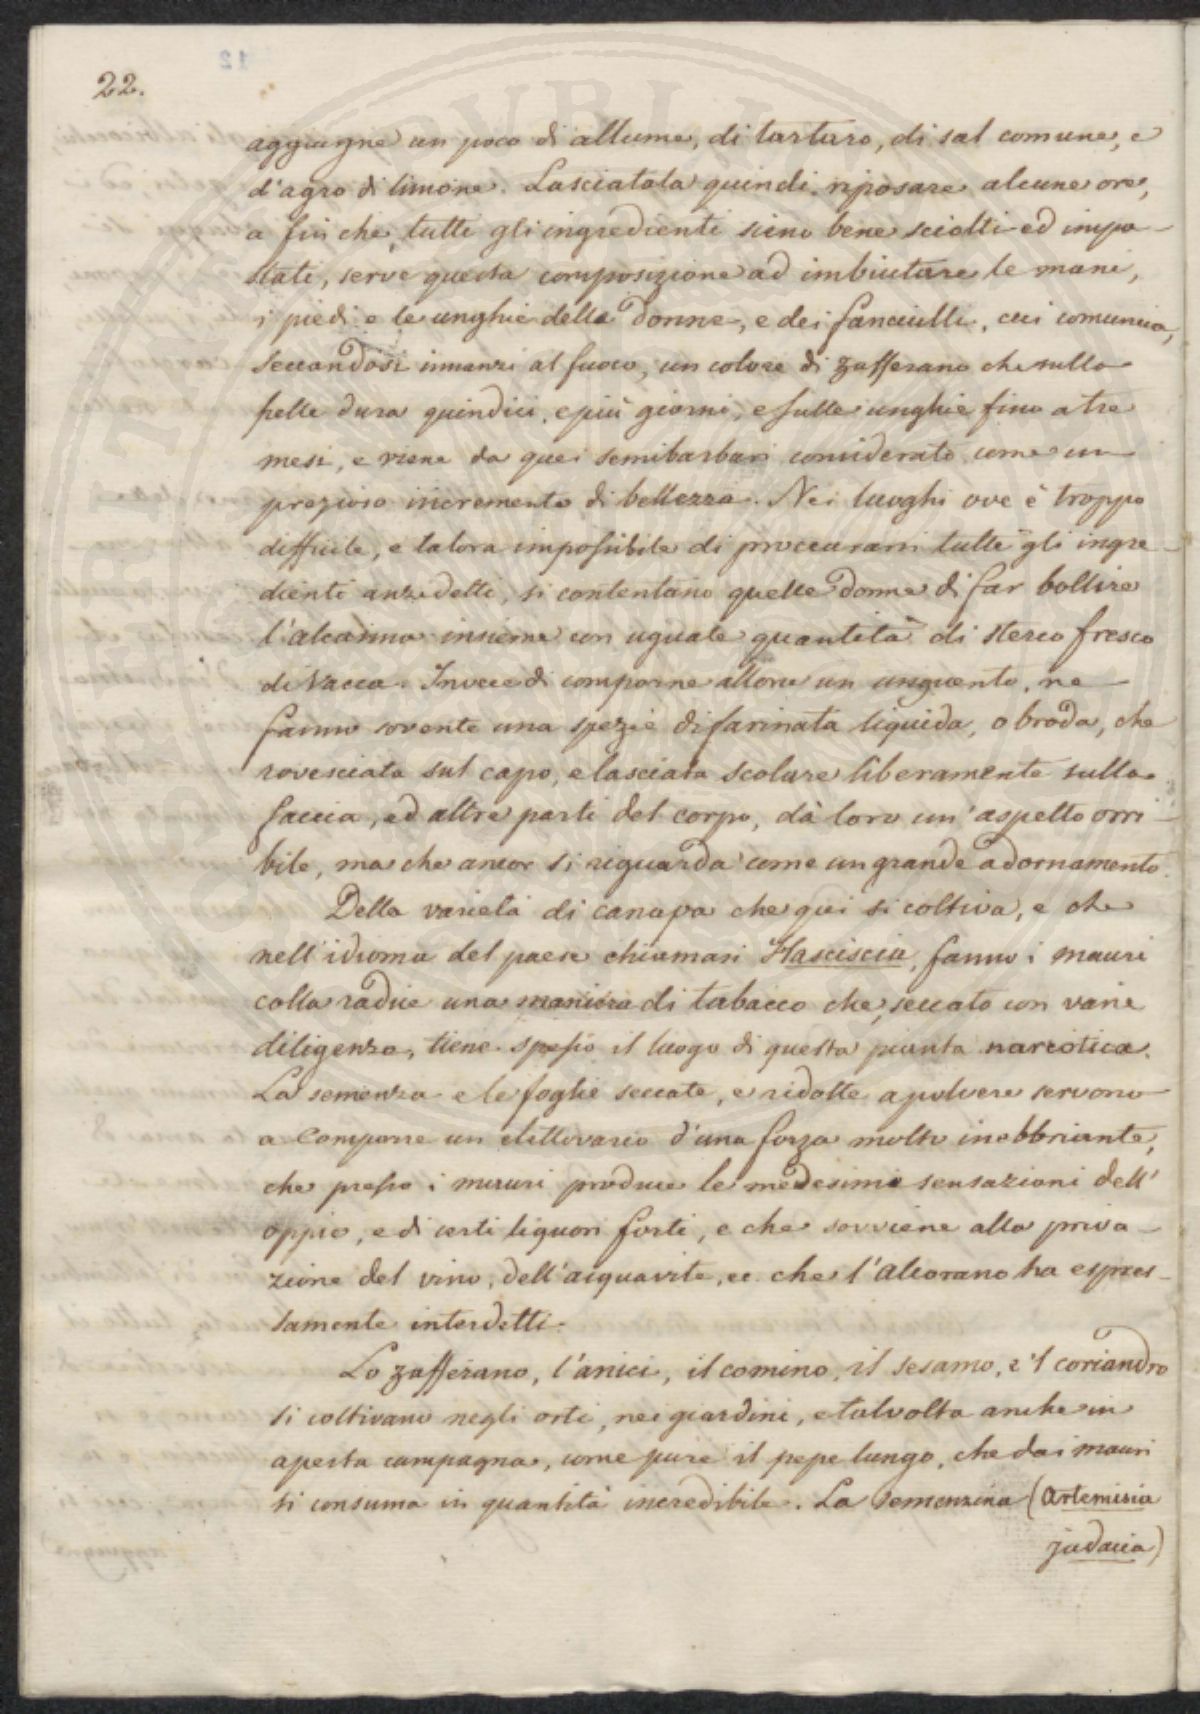 22.
aggiugne un poco di allume, di tartaro, di sal comune, e
d'agro di limone. Lasciatala quindi riposare alcune ore,
a fin che, tutti gli ingredienti sieno bene sciolti ed impa-
stati, serve questa composizione ad imbiutare le mani,
i piedi e le unghie delle Donne, e dei fanciulli, cui comunica,
seccandosi innanzi al fuoco, un colore di zafferano che sulla
pelle dura quindici, e più giorni, e sulle unghie fino a tre
mesi, e viene da quei semibarbari considerato come un
prezioso incremento di bellezza. Nei luoghi ove è troppo
difficile, e talora impossibile di proccurarsi tutti gli ingre-
dienti anzidetti, si contentano quelle Donne di far bollire
l'alcanna insieme con uguale quantità di sterco fresco
di Vacca. Invece di comporne allora un unguento, ne
fanno sovente una spezie di farinata liquida, o broda, che
rovesciata sul capo, e lasciata scolare liberamente sulla
faccia, ed altre parti del corpo, dà loro un'aspetto orri-
bile, ma che ancor si riguarda come un grande adornamento.
Della varietà di canapa che qui si coltiva, e che
nell'idioma del paese chiamasi Hasciscia, fanno i mauri
colla radice una maniera di tabacco che, seccato con varie
diligenze, tiene spesso il luogo di questa pianta narcotica.
La semenza e le foglie seccate, e ridotte a polvere servono
a Comporre un elittovario d'una forza molto inebbriante,
che presso i mauri produce le medesime sensazioni dell'
oppio, e di certi liquori forti, e che sovviene alla priva-
zione del vino, dell'acquavite, ec. che l'Alcorano ha espres-
samente interdetti.
Lo zafferano, l'anici, il comino, il sesamo, e'l coriandro
si coltivano negli orti, nei giardini, e talvolta anche in
aperta campagna, come pure il pepe lungo, che dai mauri
si consuma in quantità incredibile. La semenzina (Artemisia
judaica)